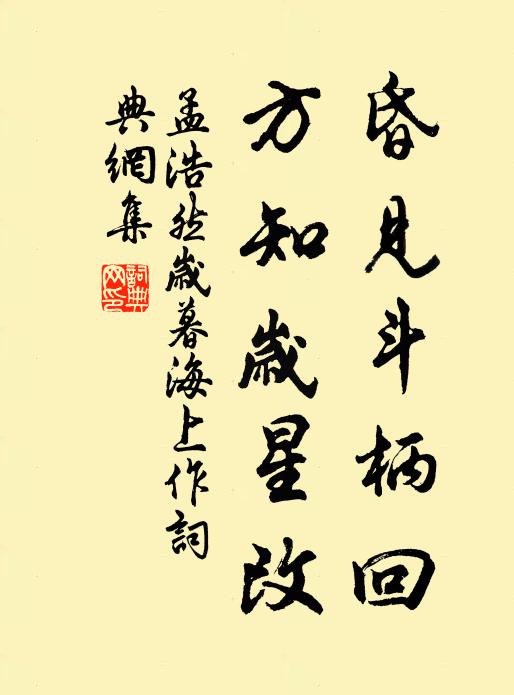 昏見斗柄回
方知歲星改
孟浩然歲暮海上作詞
典網集
詞典
网印